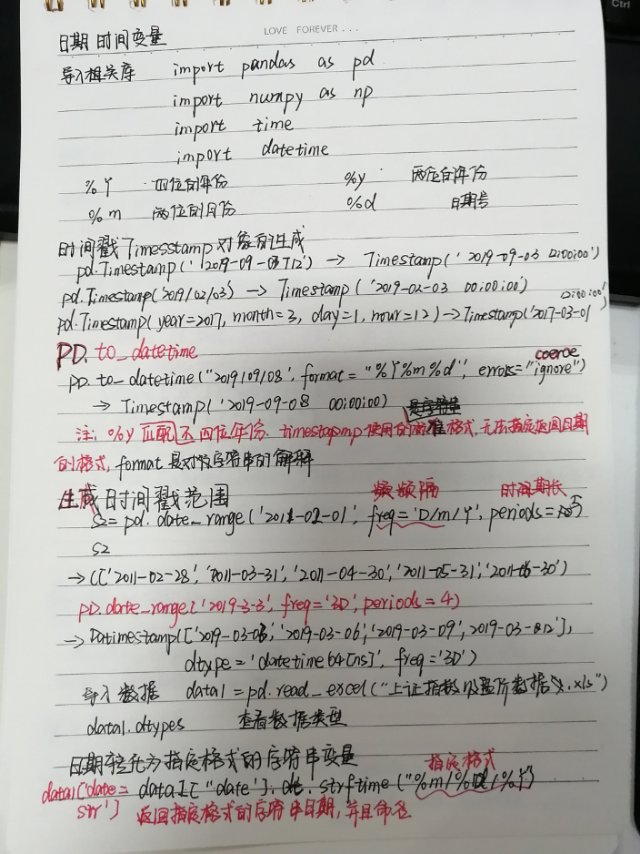 Ctrl
LOVE FOREVER...
日期时间变量
导入相关库 import pandas as pd
import numpy as np
import time
import datetime
%Y 四位的年份 %y 两位的年份
%m 两位的月份 %d 日期号
时间戳Timesstamp对象的生成
pd.Timestamp('2019-09-03T12') → Timestamp('2019-09-03 12:00:00')
pd.Timestamp('2019/02/03') → Timestamp('2019-02-03 00:00:00')
pd.Timestamp(year=2017, month=3, day=1, hour=12) → Timestamp('2017-03-01 12:00:00')
PD. to_datetime
coeroe
pd. to_datetime("2019/09/08', format = "%Y%m%d", errors="ignore")
→ Timestamp('2019-09-08 00:00:00)
注: %y匹配不四位年份. timestapmp使用的标准格式,无法指定返回日期
的格式, format是对字符串的解释
生成时间戳范围 频频隔 时间期长
S2= pd. date_range('2011-02-01', freq='D/m/Y', periods=5)
S2
→(['2011-02-28', '2011-03-31', '2011-04-30', '2011-05-31', '2011-06-30')
PD.date_range('2019-3-3', freq='3D', periods=4)
→ Datimestamp(['2019-03-03', '2019-03-06', '2019-03-09', 2019-03-12'],
dtype='datetime64[ns]', freq='3D')
导入数据 data1=pd.read_excel("上证指数收盘价数据.xls")
data1.dtypes 查看数据类型
日期转化为指定格式的字符串变量 指定格式
data1['date= data1["date"]. dt. strftime("%m/%d/%Y")
str'] 返回指定格式的字符串日期,并且命名